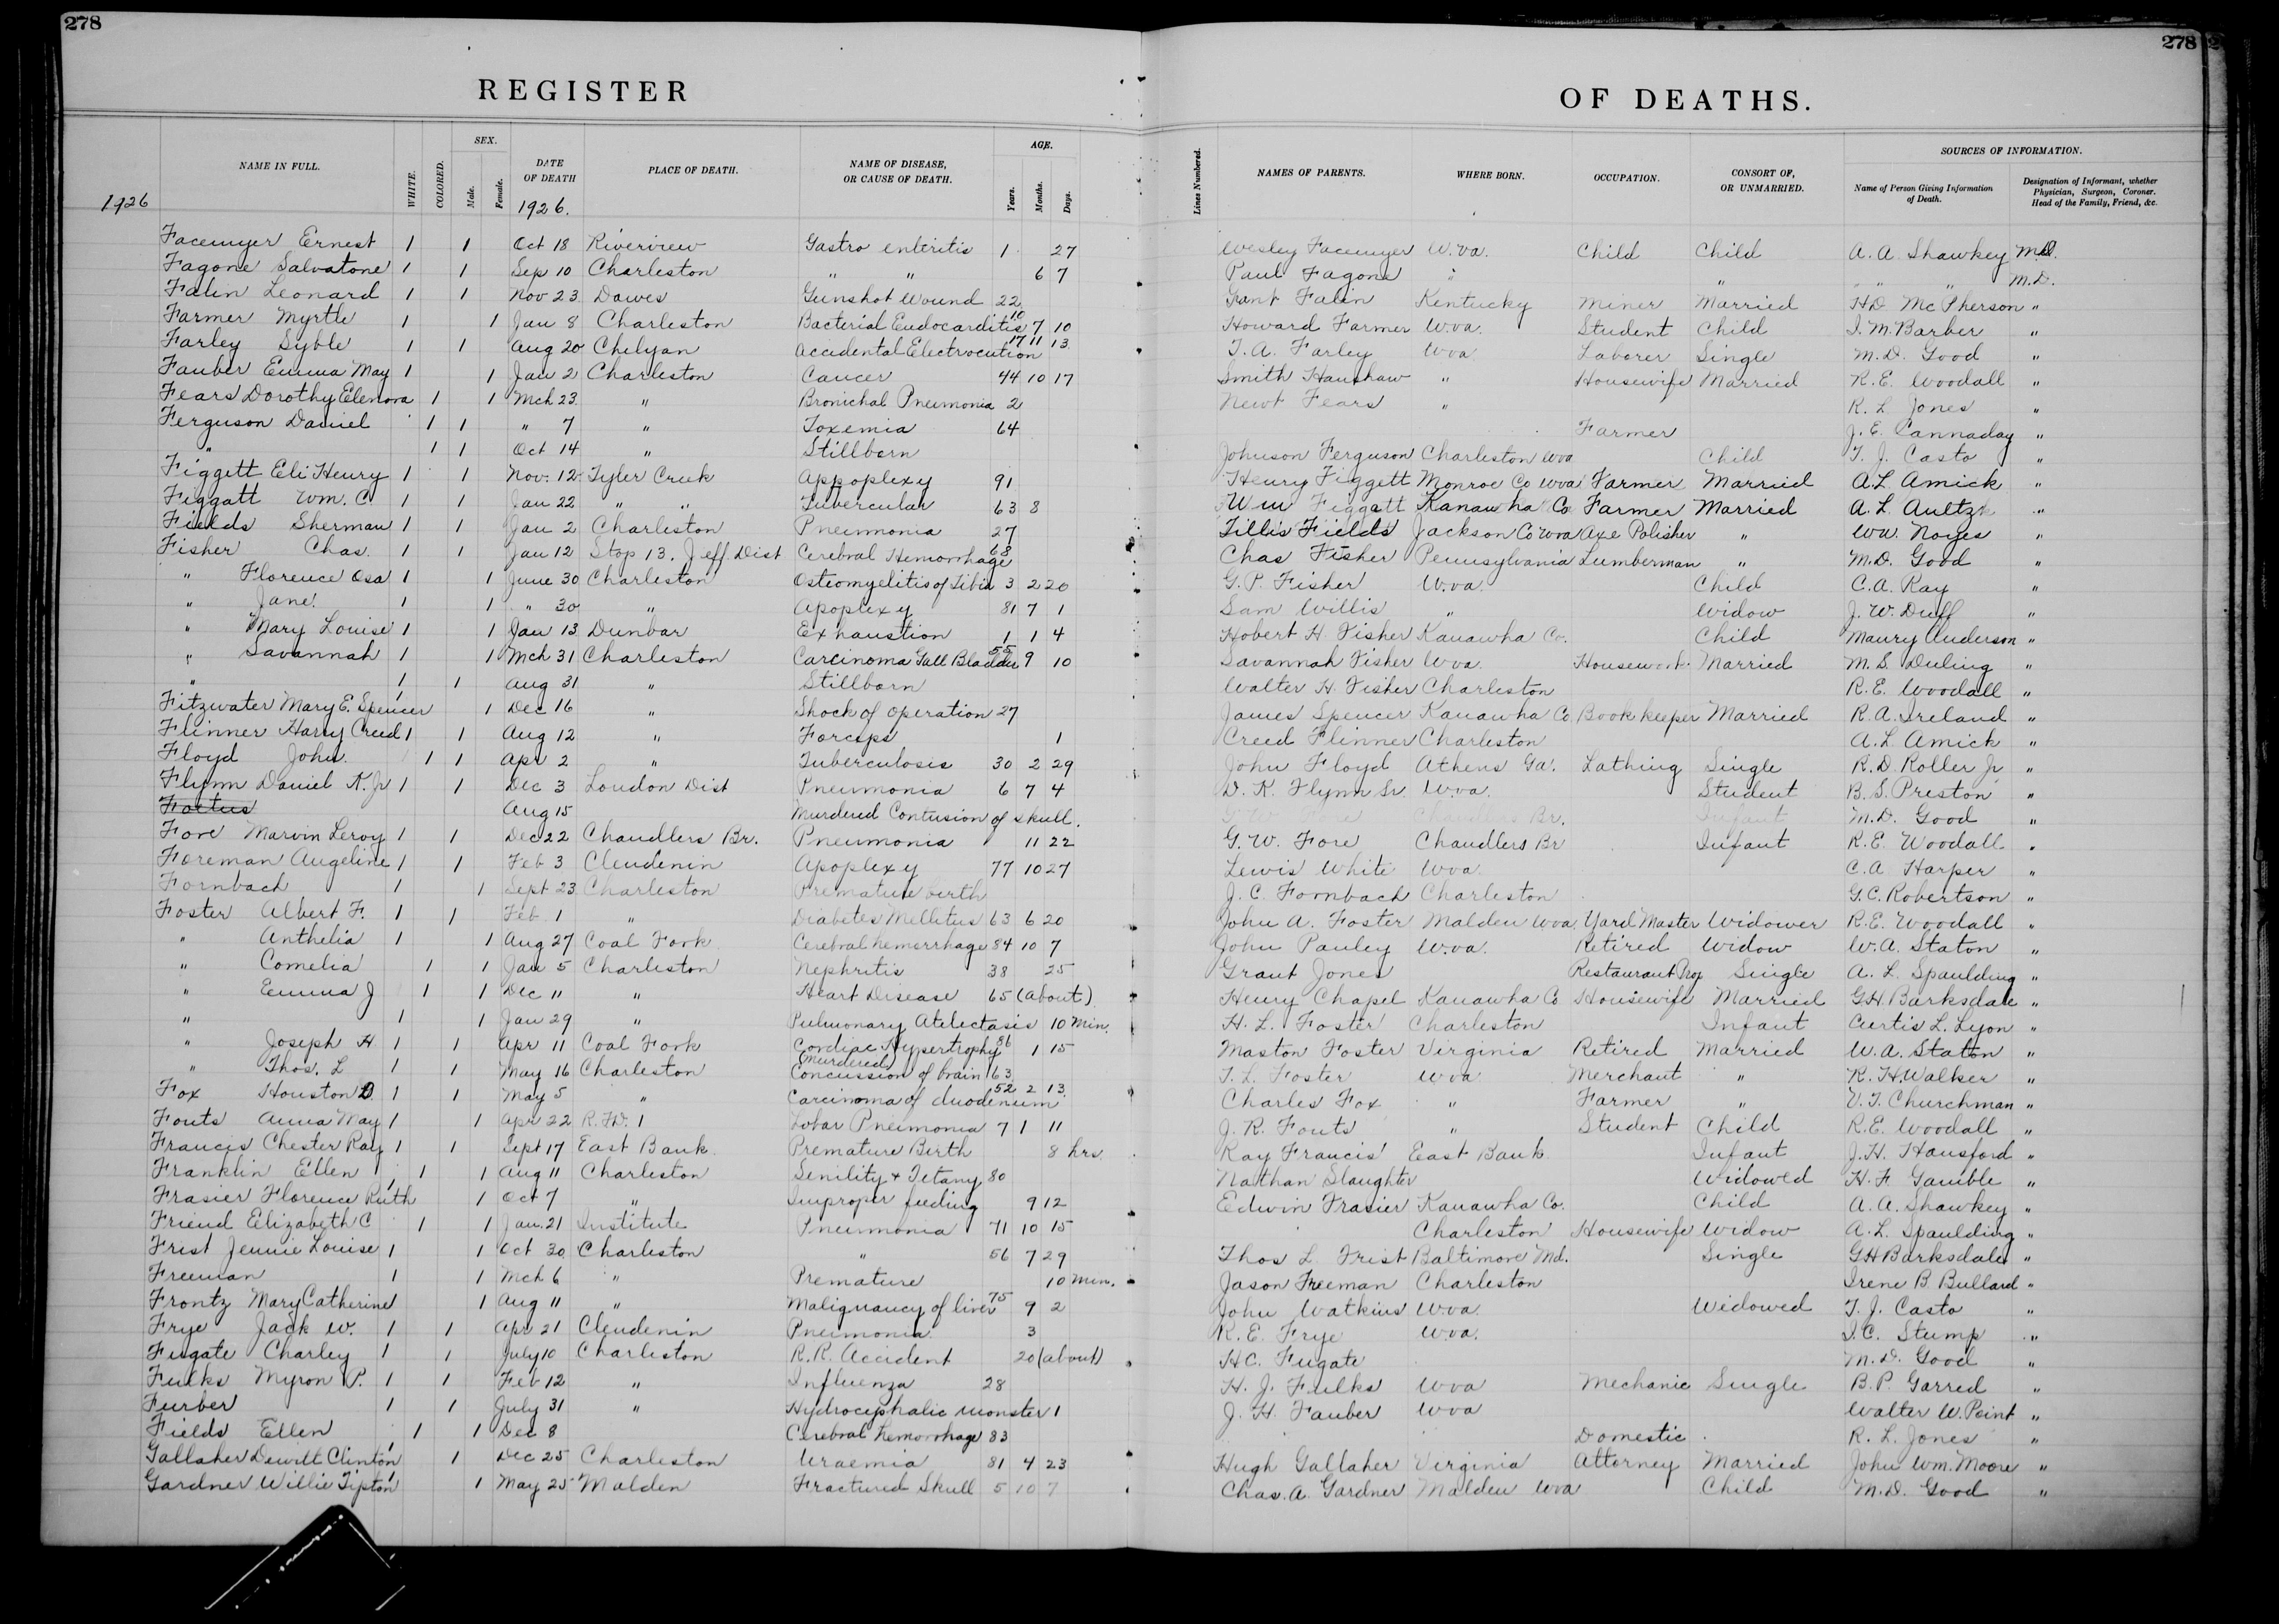 278
278
REGISTER OF DEATHS.
NAME IN FULL. WHITE. COLORED. SEX. Male. Female. DATE OF DEATH 1926. PLACE OF DEATH. NAME OF DISEASE, OR CAUSE OF DEATH. AGE. Years. Months. Days. Lines Numbered. NAMES OF PARENTS. WHERE BORN. OCCUPATION. CONSORT OF, OR UNMARRIED. SOURCES OF INFORMATION. Name of Person Giving Information of Death. Designation of Informant, whether Physician, Surgeon, Coroner. Head of the Family, Friend, &c.
1926
Facemyer Ernest 1 1 Oct 18 Riverview Gastro enteritis 1 27 Wesley Facemyer W.Va. Child Child A. A. Shawkey M.D.
Fagone Salvatone 1 1 Sep 10 Charleston " " 6 7 Paul Fagone " " " " " M.D.
Falin Leonard 1 1 Nov 23 Dawes Gunshot Wound 22 Grant Falin Kentucky Miner Married H.D. McPherson "
Farmer Myrtle 1 1 Jan 8 Charleston Bacterial Endocarditis 10 7 10 Howard Farmer W.va. Student Child I. M. Barber "
Farley Syble 1 1 Aug 20 Chelyan Accidental Electrocution 17 11 13 T. A. Farley Wva. Laborer Single M.D. Good "
Fauber Emma May 1 1 Jan 2 Charleston Cancer 44 10 17 Smith Hanshaw " Housewife Married R.E. Woodall "
Fears Dorothy Elenora 1 1 Mch 23 " Bronichal Pneumonia 2 Newt Fears " R. L. Jones "
Ferguson Daniel 1 1 " 7 " Toxemia 64 Farmer J. E. Cannaday "
" 1 1 Oct 14 " Stillborn Johnson Ferguson Charleston Wva Child T. J. Casto "
Figgett Eli Henry 1 1 Nov. 12 Tyler Creek Appoplexy 91 Henry Figgett Monroe Co Wva Farmer Married A.L. Amick "
Figgatt Wm. C. 1 1 Jan 22 " " Tubercular 63 8 Wm Figgatt Kanawha Co Farmer Married A. L. Aultz "
Fields Sherman 1 1 Jan 2 Charleston Pneumonia 27 Tillis Fields Jackson Co Wva Axe Polisher " Wa. Noyes "
Fisher Chas. 1 1 Jan 12 Stop 13. Jeff Dist Cerebral Hemorrhage 68 Chas Fisher Pennsylvania Lumberman " M.D. Good "
" Florence Osa 1 1 June 30 Charleston Osteomyelitis of Tibia 3 2 20 G. P. Fisher W.va. Child C.A. Ray "
" Jane. 1 1 " 30 " Apoplexy 81 7 1 Sam Willis " Widow J. W. Duff "
" Mary Louise 1 1 Jan 13 Dunbar Exhaustion 1 1 4 Hobert H. Fisher Kanawha Co. Child Maury Anderson "
" Savannah 1 1 Mch 31 Charleston Carcinoma Gall Bladder 55 9 10 Savannah Fisher Wva. Housework Married M. S. Duling "
" 1 1 Aug 31 " Stillborn Walter H. Fisher Charleston R.E. Woodall "
Fitzwater Mary E. Spencer 1 1 Dec 16 " Shock of operation 27 James Spencer Kanawha Co Bookkeeper Married R.A. Ireland "
Flinner Harry Creed 1 1 Aug 12 " Forceps 1 Creed Flinner Charleston A.L. Amick "
Floyd John. 1 1 Apr 2 " Tuberculosis 30 2 29 John Floyd Athens Ga. Lathing Single R.D. Roller Jr "
Flynn Daniel K. Jr 1 1 Dec 3 London Dist Pneumonia 6 7 4 D. K. Flynn Sr. W.va. Student B. S. Preston "
Foetus Aug 15 Murdered Contusion of skull. M.D. Good "
Fore Marvin Leroy 1 1 Dec 22 Chandlers Br. Pneumonia 11 22 G. W. Fore Chandlers Br Infant R.E. Woodall "
Foreman Angeline 1 1 Feb 3 Clendenin Apoplexy 77 10 27 Lewis White Wva. C.A. Harper "
Fornbach 1 1 Sept 23 Charleston Premature birth J. C. Fornbach Charleston G.C. Robertson "
Foster Albert F. 1 1 Feb 1 " Diabetes Mellitus 63 6 20 John A. Foster Malden Wva. Yard Master Widower R.E. Woodall "
" Anthelia 1 1 Aug 27 Coal Fork Cerebral hemorrhage 84 10 7 John Pauley W.va. Retired Widow W.A. Staton "
" Cornelia 1 1 Jan 5 Charleston Nephritis 38 25 Grant Jones Restaurant Prop Single A. L. Spaulding "
" Emma J 1 1 Dec 11 " Heart Disease 65 (about) Henry Chapel Kanawha Co Housewife Married G.H. Barksdale "
" 1 1 Jan 29 " Pulmonary Atelectasis 10 Min. H. L. Foster Charleston Infant Curtis L. Lyon "
" Joseph H 1 1 Apr 11 Coal Fork Cordiac Hypertrophy 86 1 15 Maston Foster Virginia Retired Married W.A. Staton "
" Thos. L 1 1 May 16 Charleston (Murdered) Concussion of brain 63 T. L. Foster Wva Merchant " R. H. Walker "
Fox Houston D. 1 1 May 5 " Carcinoma of duodenium 52 2 13 Charles Fox " Farmer " V. T. Churchman "
Fouts Anna May 1 1 Apr 22 R.F.D. 1 Lobar Pneumonia 7 1 11 J. R. Fouts " Student Child R.E. Woodall "
Francis Chester Ray 1 1 Sept 17 East Bank Premature Birth 8 hrs. Ray Francis East Bank Infant J. H. Hansford "
Franklin Ellen 1 1 Aug 11 Charleston Senility & Tetany 80 Nathan Slaughter Widowed H. F. Gamble "
Frasier Florence Ruth 1 1 Oct 7 " Improper feeding 9 12 Edwin Frasier Kanawha Co. Child A. A. Shawkey "
Friend Elizabeth C 1 1 Jan. 21 Institute Pneumonia 71 10 15 Charleston Housewife Widow A. L. Spaulding "
Frist Jennie Louise 1 1 Oct 30 Charleston " 56 7 29 Thos L. Frist Baltimore Md. Single G H Barksdale "
Freeman 1 1 Mch 6 " Premature 10 min. Jason Freeman Charleston Irene B. Bullard "
Frontz Mary Catherine 1 1 Aug 11 " Malignancy of liver 75 9 2 John Watkins W.va. Widowed T. J. Casto "
Frye Jack W. 1 1 Apr 21 Clendenin Pneimonia 3 R. E. Frye W.va. I.C. Stump "
Fugate Charley 1 1 July 10 Charleston R. R. Accident 20 (about) H C. Fugate M. D. Good "
Fulks Myron P. 1 1 Feb 12 " Influenza 28 H. J. Fulks Wva Mechanic Single B.P. Garred "
Furber 1 1 July 31 " Hydrocephalic monster 1 J. H. Fauber Wva Walter W. Point "
Fields Ellen 1 1 Dec 8 Cerebral hemorrhage 83 Domestic R. L. Jones "
Gallaher Dewitt Clinton 1 1 Dec 25 Charleston Uraemia 81 4 23 Hugh Gallaher Virginia Attorney Married John Wm. Moore "
Gardner Willie Tipton 1 1 May 25 Malden Fractured Skull 5 10 7 Chas. A. Gardner Malden Wva Child M. D. Good "